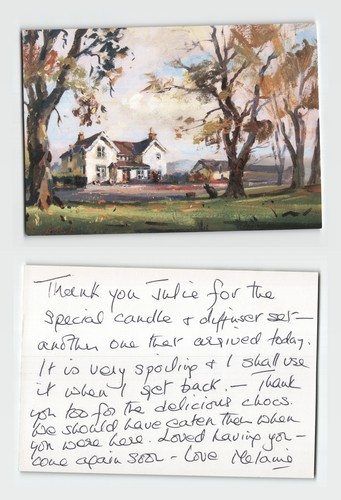 Thank you Julie for the
special candle & diffuser set —
another one that arrived today.
It is very spoiling & I shall use
it when I get back. — Thank
you too for the delicious chocs.
We should have eaten them when
you were here. Loved having you —
come again soon — Love Melanie